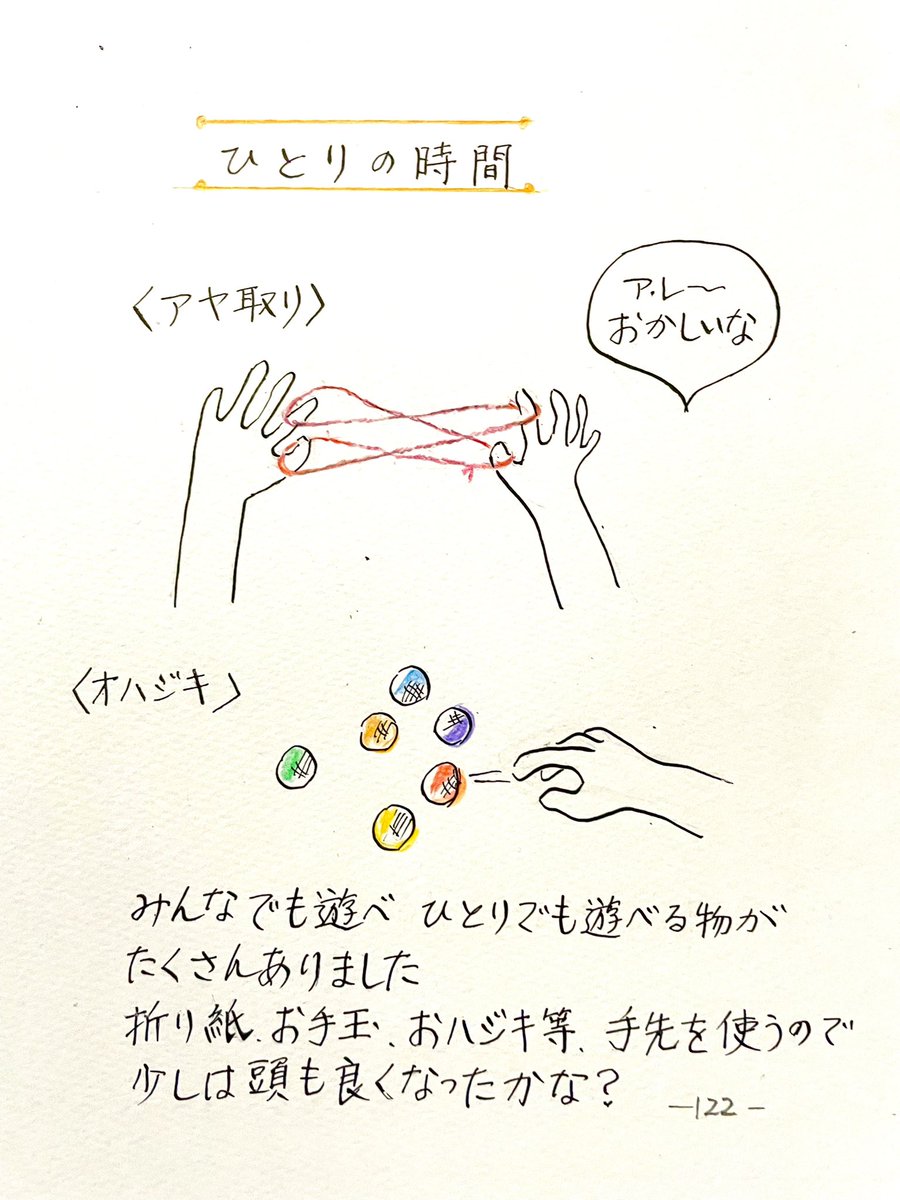 ひとりの時間
〈アヤ取り〉
アレ〜
おかしいな
〈オハジキ〉
みんなでも遊べ ひとりでも遊べる物が
たくさんありました
折り紙、お手玉、おハジキ等、手先を使うので
少しは頭も良くなったかな?
-122-